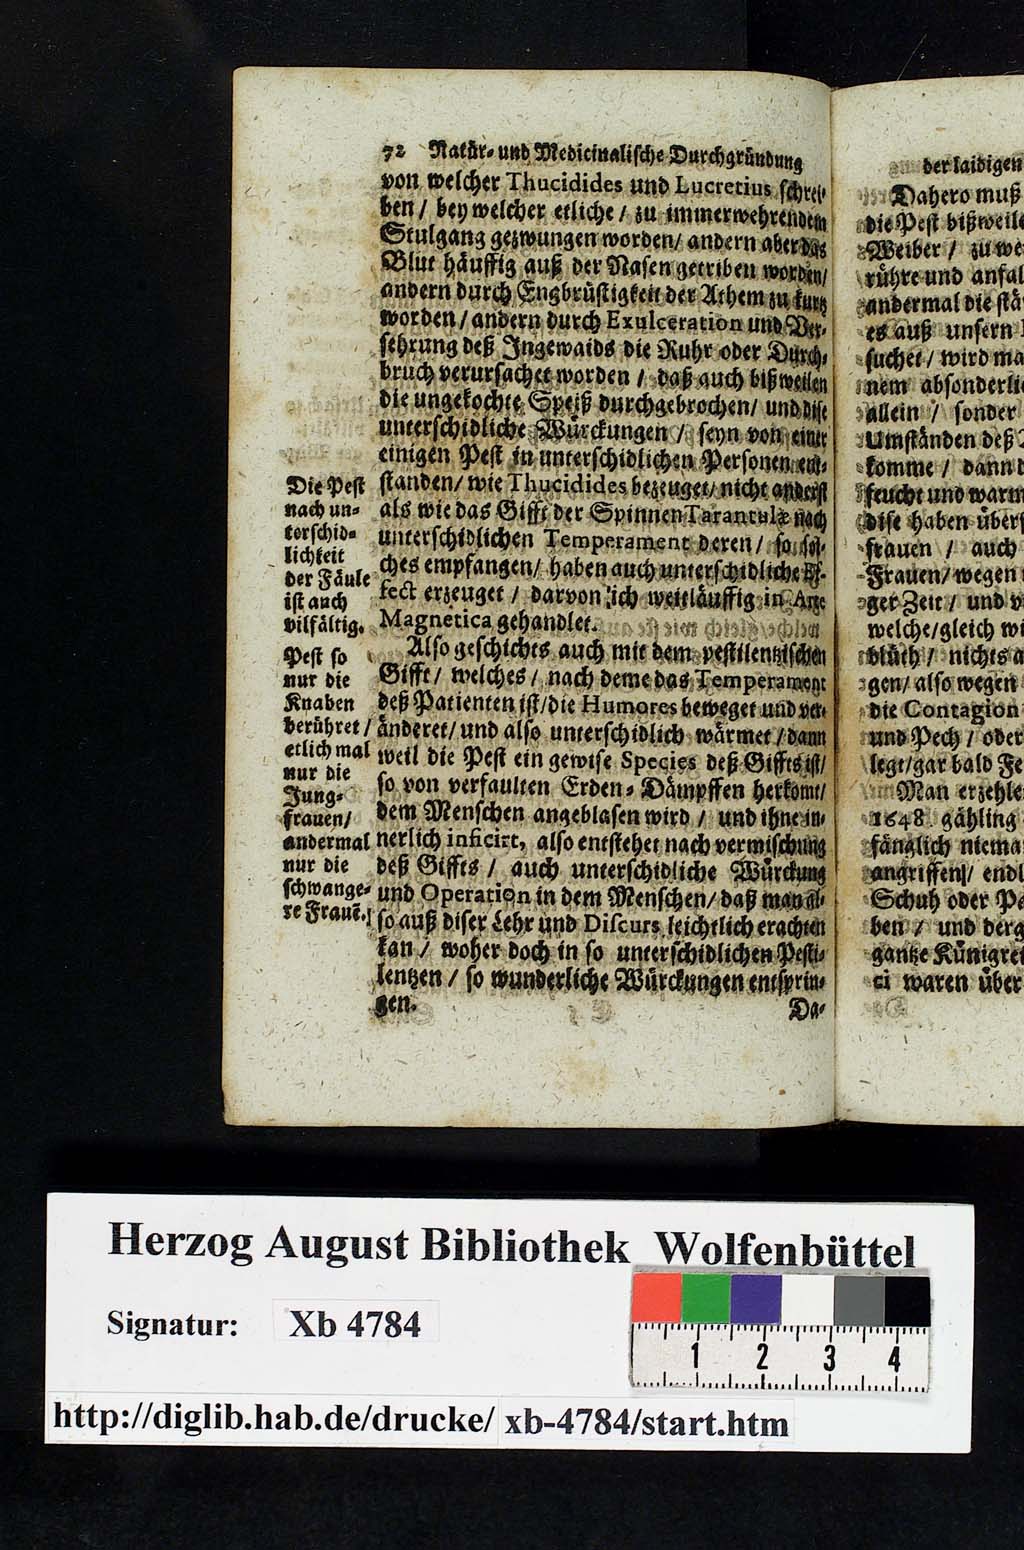 72 Natür- und Medicinalische Durchgründung
von welcher Thucidides und Lucretius schrei-
ben / bey welcher etliche / zu immerwehrendem
Stulgang gezwungen worden / andern aber das
Blut häuffig auß der Nasen getriben worden /
andern durch Engbrüstigkeit der Athem zu kurtz
worden / andern durch Exulceration und Ver-
sehrung deß Ingewaids die Ruhr oder Durch-
bruch verursachet worden / daß auch bißweilen
die ungekochte Speiß durchgebrochen / und dise
unterschidliche Würckungen / seyn von einer
einigen Pest in unterschidlichen Personen ent-
standen / wie Thucidides bezeuget / nicht anderst
als wie das Gifft der Spinnen Tarantulæ nach
unterschidlichen Temperament deren / so sol-
ches empfangen / haben auch unterschidliche Ef-
fect erzeuget / darvon ich weitläuffig in Arte
Magnetica gehandlet.
Also geschichts auch mit dem pestilentzischen
Gifft / welches / nach deme das Temperament
deß Patienten ist / die Humores beweget und ver-
änderet / und also unterschidlich wärmet / dann
weil die Pest ein gewise Species deß Giffts ist /
so von verfaulten Erden-Dämpffen herkomt /
dem Menschen angeblasen wird / und ihne in-
nerlich inficirt, also entstehet nach vermischung
deß Giffts / auch unterschidliche Würckung
und Operation in dem Menschen / daß man al-
so auß diser Lehr und Discurs leichtlich erachten
kan / woher doch in so unterschidlichen Pesti-
lentzen / so wunderliche Würckungen entsprin-
gen.
Da-
Die Pest
nach un-
terschid-
lichkeit
der Fäule
ist auch
vilfältig.
Pest so
nur die
Knaben
berühret /
etlich mal
nur die
Jung-
frauen /
andermal
nur die
schwange-
re Frauẽ.
der laidigen
Dahero muß
die Pest bißweile
Weiber / zu we
rühre und anfal
andermal die stä
es auß unsern
suchet / wird ma
nem absonderli
allein / sonder
Umständen deß
komme / dann d
feucht und warm
dise haben übers
frauen / auch
Frauen / wegen
ger Zeit / und v
welche / gleich wi
blüth / nichts a
gen / also wegen
die Contagion
und Pech / oder
legt / gar bald Fe
Man erzehle
1648. gähling
fänglich niema
angriffen / endl
Schuh oder Pa
ben / und derg
gantze Künigrei
ci waren über
Herzog August Bibliothek Wolfenbüttel
Signatur: Xb 4784
1 2 3 4
http://diglib.hab.de/drucke/ xb-4784/start.htm